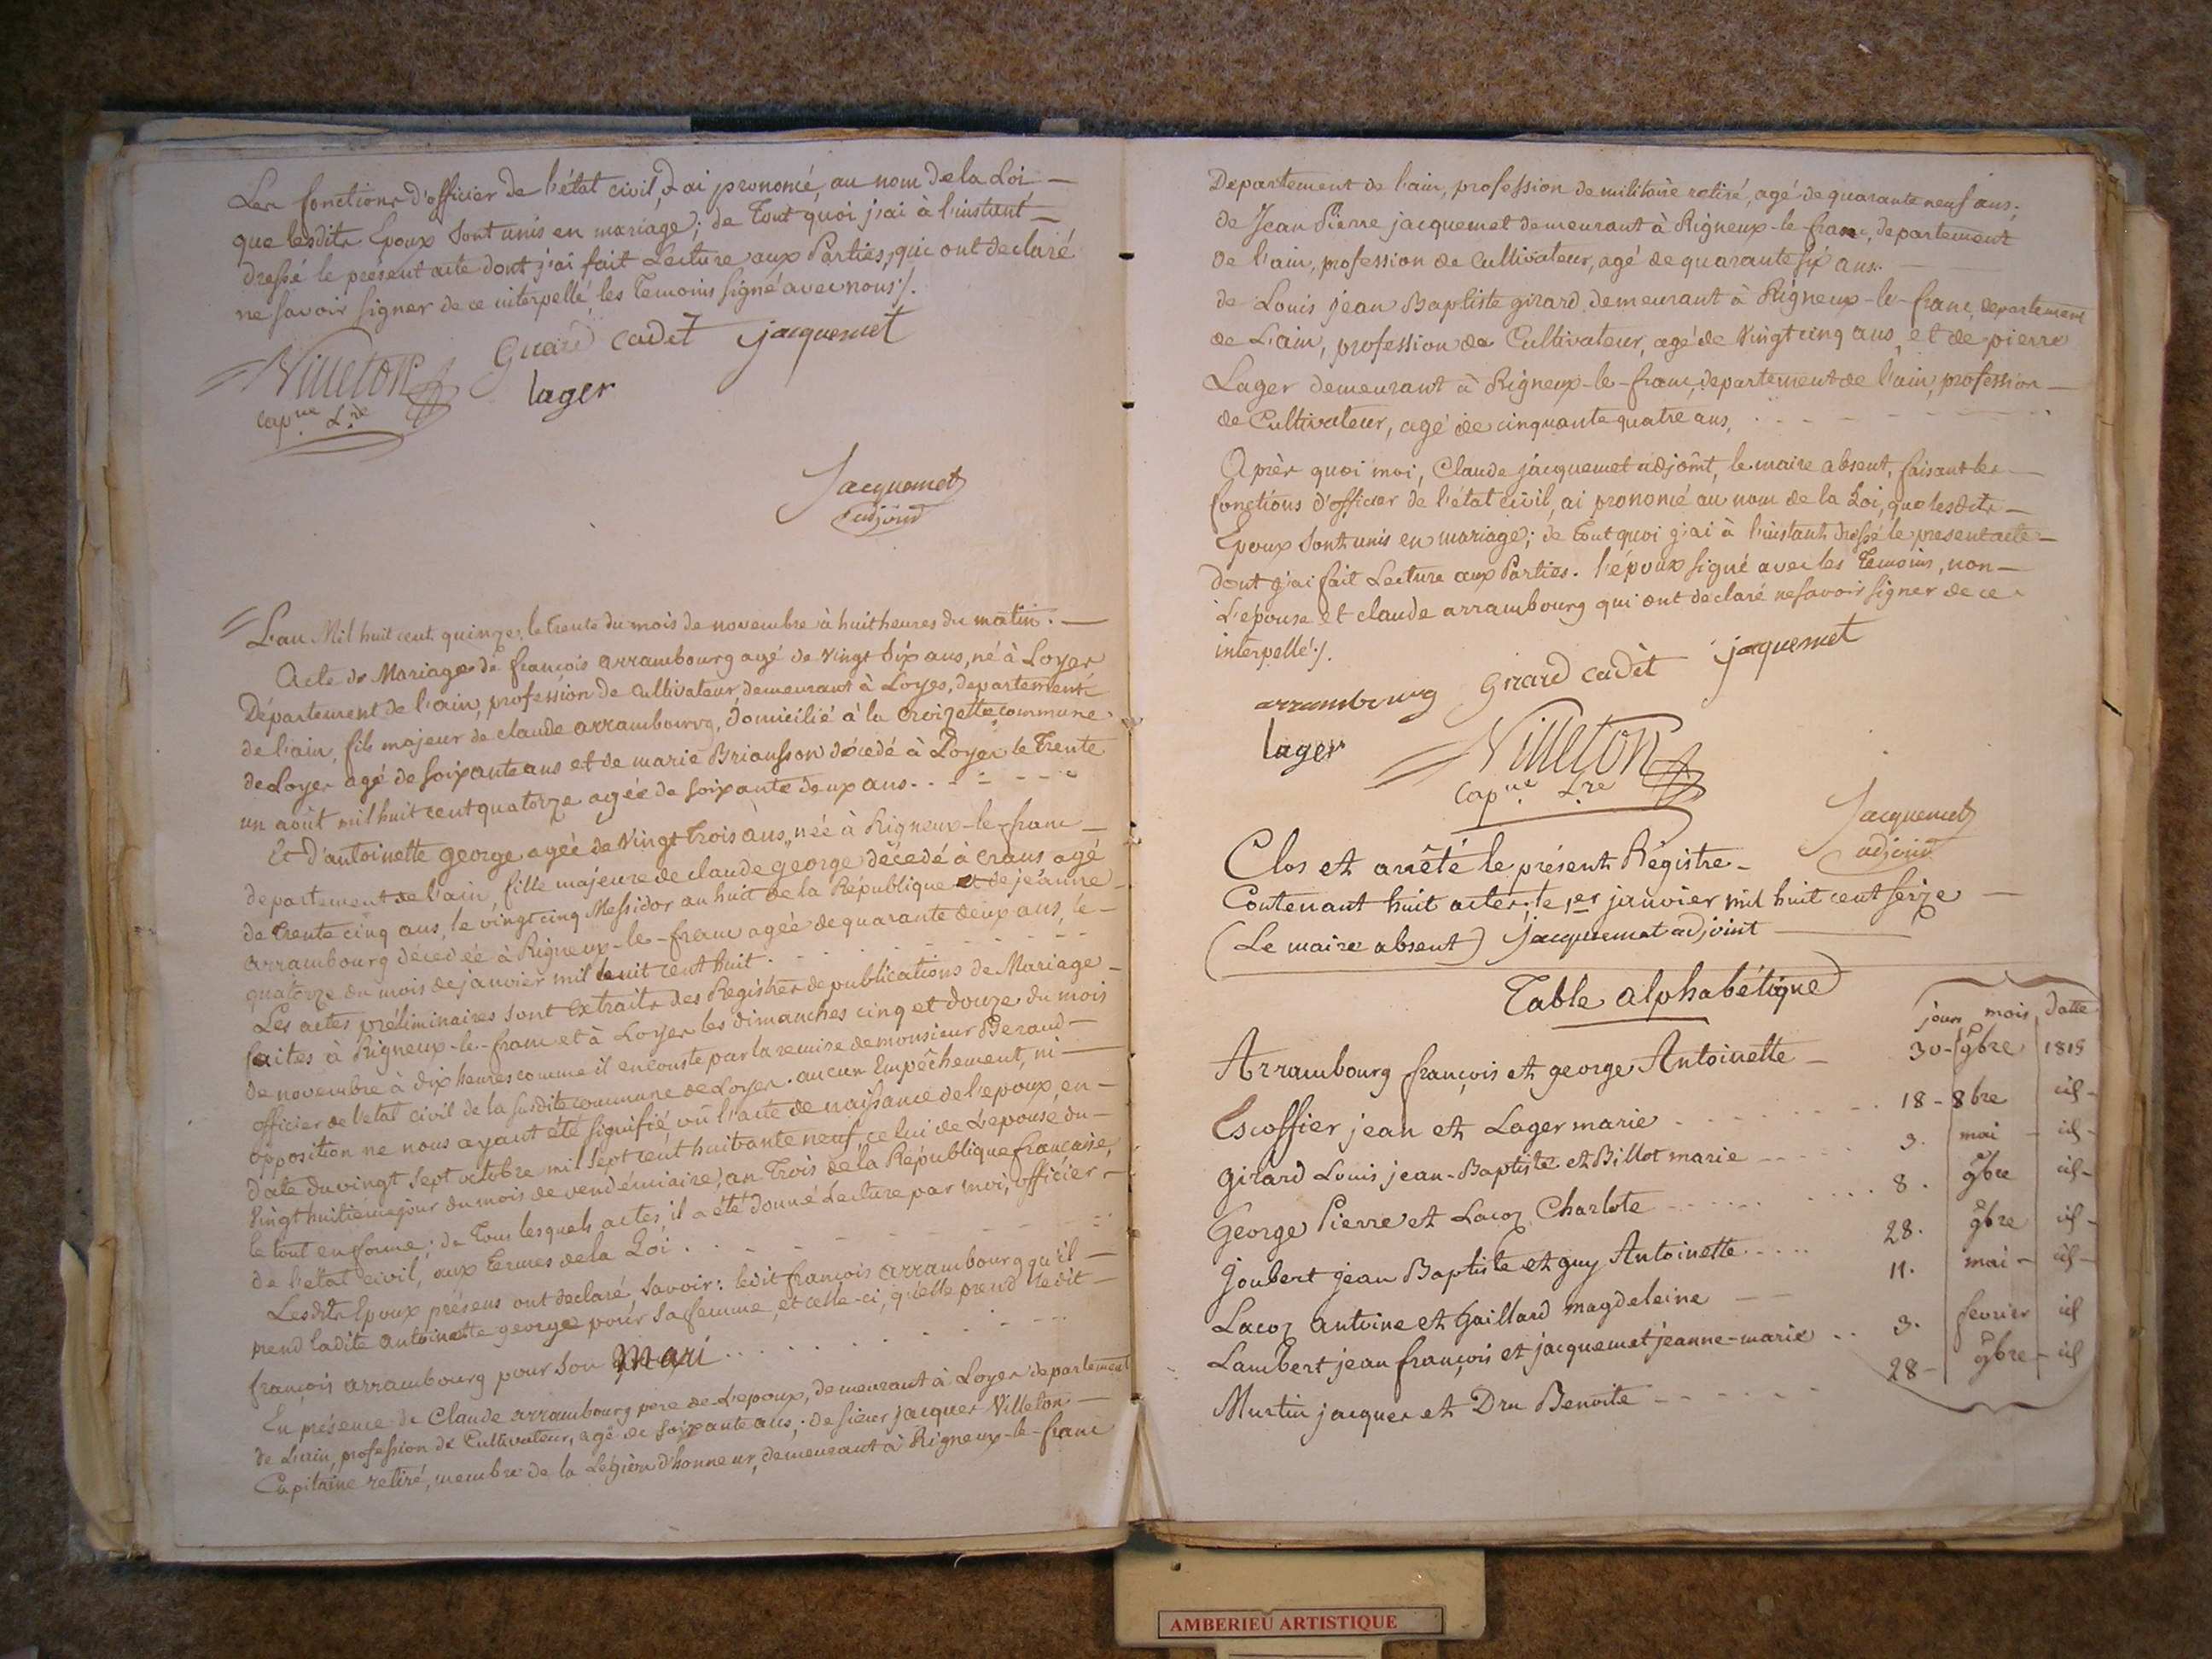 Les fonctions d'officier de l'état civil, J'ai prononcé, au nom de la Loi —
que lesdits Epoux sont unis en mariage; de Tout quoi j'ai à l'instant —
dressé le présent acte dont j'ai fait Lecture aux Parties, qui ont declaré
ne savoir signer de ce interpellé, les Temoins signé avec nous ./.
Girard cadet jacquemet
Villeton
lager
capne Lre
Jacquemet
adjoint
L'an Mil huit cent quinze, le trente du mois de novembre à huit heures du matin. —
Acte de Mariage de françois arrambourg agé de vingt six ans, né à Loyes
Département de l'ain, profession de cultivateur demeurant à Loyes, departement
de l'ain, fils majeur de claude arrambourg, domicilié à la Croizette commune
de Loyes agé de soixante ans et de marie Briansson décedé à Loyes le Trente
un août mil huit cent quatorze agée de soixante deux ans. . . - - - -
Et D'antoinette george agée de Vingt Trois ans, née à Rigneux-le-franc —
departement de l'ain, fille majeure de claude George décedé à Crans agé
de trente cinq ans, le vingt cinq Messidor an huit de la République et de jeanne —
arrambourg décedée à Rigneux-le-franc agée de quarante deux ans, le —
quatorze du mois de janvier mil huit cent huit. - - - - -
Les actes préliminaires sont Extraits des Registres de publications de Mariage —
faites à Rigneux-le-franc et à Loyes les dimanches cinq et douze du mois
de novembre à dix heures comme il en conste par la remise de monsieur Beraud —
officier de l'etat civil de la susdite commune de Loyes. aucun Empêchement, ni —
opposition ne nous ayant été signifié, vû l'acte de naissance de l'epoux, en —
date du vingt sept octobre mil sept cent huitante neuf, celui de L'epouse, du —
Vingt huitieme jour du mois de vendémiaire, an Trois de la République francaise,
le tout en forme; de Tous lesquels actes, il a été donné Lecture par moi, officier —
de l'etat civil, aux termes de la Loi. - - - - -
Lesdits Epoux présens ont declaré, savoir: ledit françois arrambourg qu'il —
prend ladite antoinette george pour sa femme, et celle-ci, qu'elle prend ledit —
françois arrambourg pour son Mari . . . . . .
En présence de Claude arrambourg pere de L'epoux, demeurant à Loyes departement
de L'ain, profession de Cultivateur, agé de soixante ans; de sieur jacques Villeton —
Capitaine retiré, membre de la Légion d'honneur, demeurant à Rigneux-le-franc
Departement de l'ain, profession de militaire retiré, agé de quarante neuf ans;
de Jean Pierre jacquemet demeurant à Rigneux-le-franc, departement
de l'ain, profession de Cultivateur, agé de quarante six ans. —
de Louis jean Baptiste girard demeurant à Rigneux-le-franc, departement
de L'ain, profession de Cultivateur, agé de Vingt cinq ans, et de pierre
Lager demeurant à Rigneux-le-franc, departement de l'ain, profession —
de Cultivateur, agé de cinquante quatre ans, . . - - - -
Après quoi moi, Claude jacquemet adjoint, le maire absent, faisant les —
fonctions d'officier de l'état civil, ai prononcé au nom de la Loi, que lesdits —
Epoux sont unis en mariage; de Tout quoi j'ai à l'instant dressé le present acte —
dont j'ai fait Lecture aux Parties. l'époux signé avec les Temoins, non —
L'epouse et claude arrambourg qui ont déclaré ne savoir signer de ce
interpellé ./.
arrambourg Girard cadèt jaquemet
lager Villeton
capne Lre
Jacquemet
adjoint
Clos et arrêté le présent Régistre —
Contenant huit actes, le 1er janvier mil huit cent seize —
(Le maire absent) Jacquemet adjoint —
Table alphabétique
jours mois Datte
Arrambourg françois et george Antoinette — 30 - 9bre 1815
Escoffier jean et Lager marie - - - - 18 - 8bre id -
Girard Louis jean-Baptiste et Billot marie - - - - 3. mai - id -
George Pierre et Lacoz Charlote - - - - 8. 9bre id -
Joubert jean Baptiste et guy Antoinette - - - - 28. 9bre id -
Lacoz Antoine et Gaillard magdeleine — 11. mai - id -
Lambert jean françois et jacquemet jeanne-marie . . 3. fevrier id
Martin jacques et Dru Benoite - - - - 28 - 9bre - id
AMBERIEU ARTISTIQUE